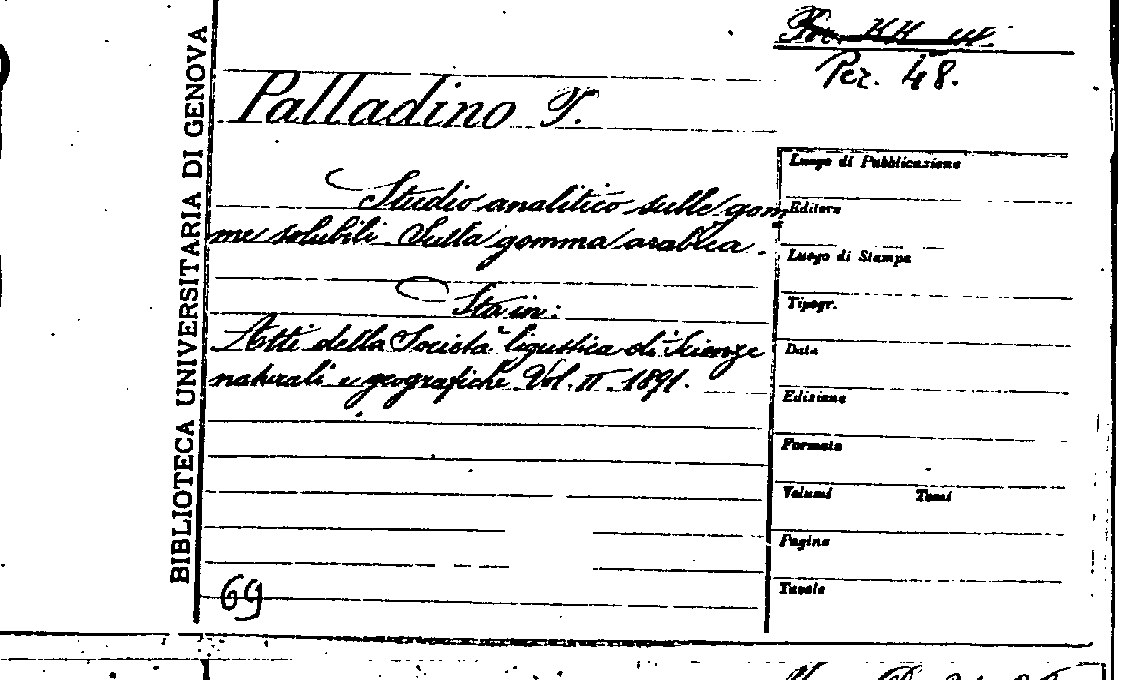 BIBLIOTECA UNIVERSITARIA DI GENOVA
Per. 48.
Palladino P.
Studio analitico sulle gom
me solubili. Sulla gomma arabica.
Sta in:
Atti della Società ligustica di Scienze
naturali e geografiche Vol. II 1891.
69
Luogo di Pubblicazione
Editore
Luogo di Stampa
Tipogr.
Data
Edizione
Formato
Volumi Tomi
Pagine
Tavole